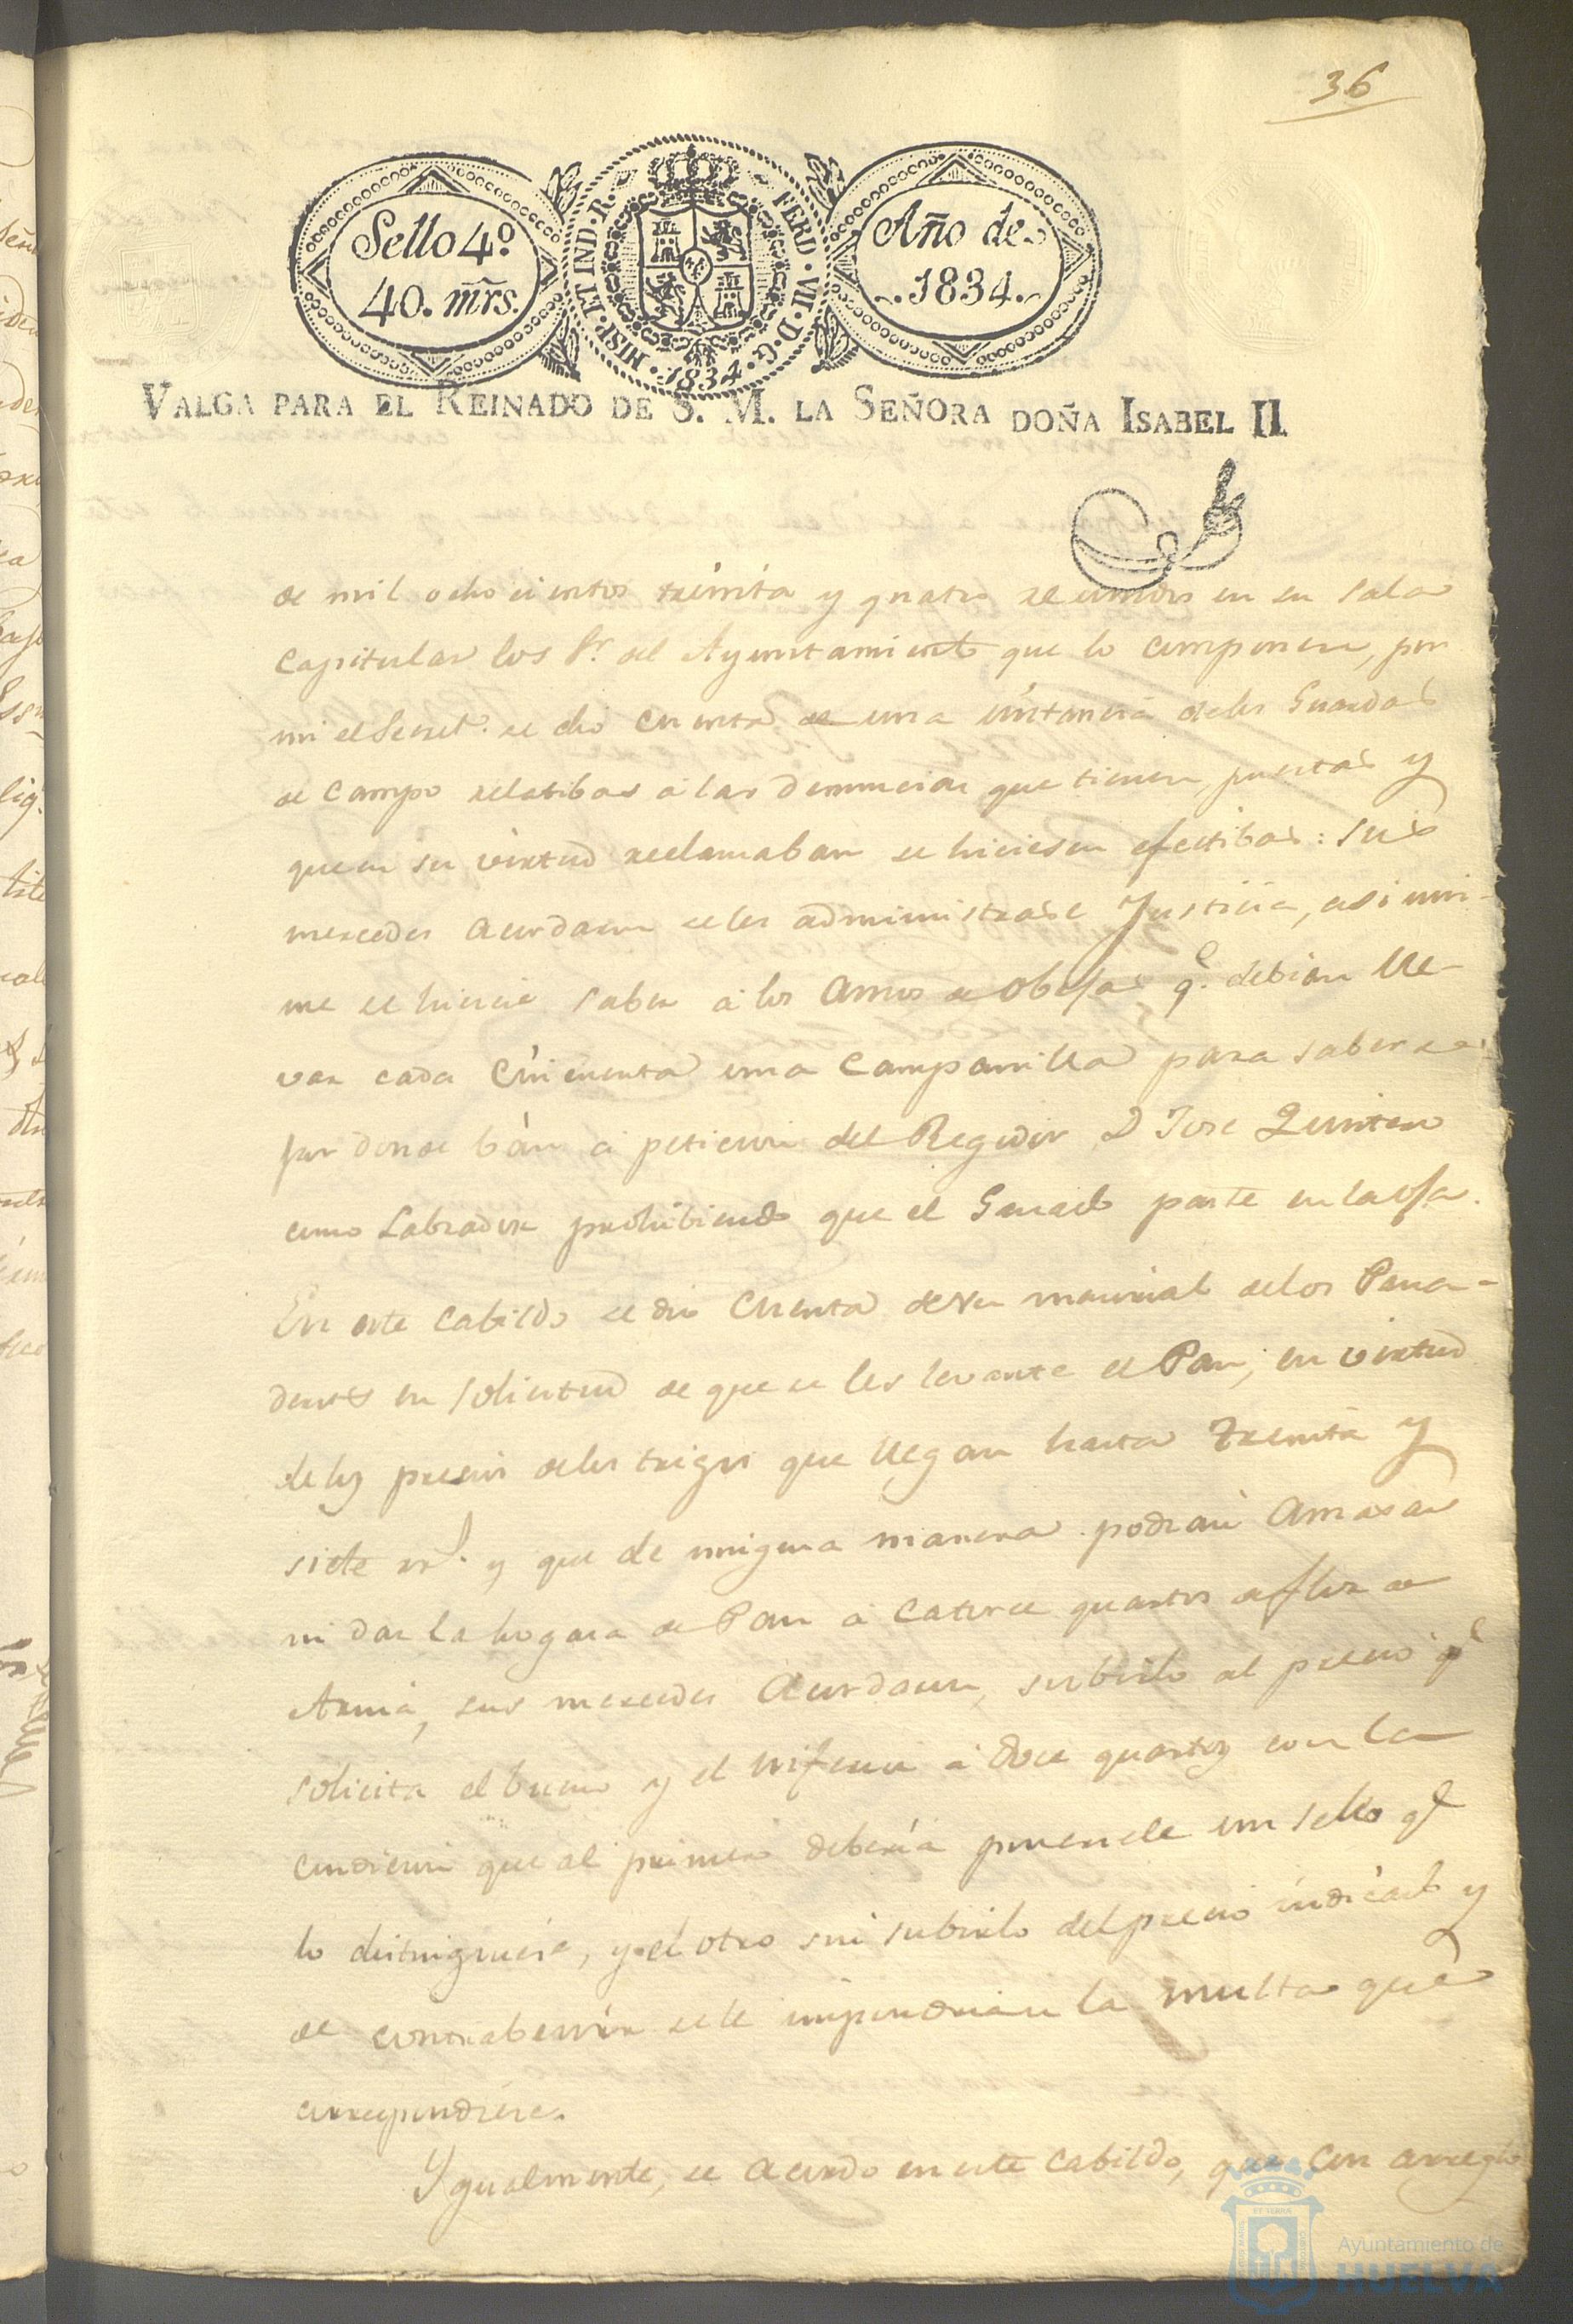 36
Sello 4º
40. mrs.
HISP. ET IND. R.
FERD. VII. D. G.
.1834.
Año de
.1834.
VALGA PARA EL REINADO DE S. M. LA SEÑORA DOÑA ISABEL II
de mil ocho cientos treinta y quatro reunidos en su sala
capitular los Sr. del Ayuntamiento que lo componen, por
mi el Secret. se dio cuenta de una instancia de los Guardas
de Campo relatibas a las denuncias que tienen puestas y
que en su virtud reclamaban se hiciesen efectibas: sus
mercedes acordaron se les administrase Justicia, asi mi-
me se hiciese saber á los Amos de Obejas q.e debian lle-
var cada cincuenta una Campanilla para saberse
por donde bán á peticion del Regidor D Jose Quintero
como Labrador prohibiendo que el Ganado paste en la
En este Cabildo se dio Cuenta de un memorial de los Pana-
deros en solicitud de que se les levante el Pan, en virtud
de los precios de los trigos que llegan hasta treinta y
siete r.s y que de ninguna manera podrán Amasar
ni dar la hogasa de Pan á catorce quartos de flor de
Arina, sus mercedes acordaron, subirlo al precio q.e
solicita el bueno y el inferior á doce quartos con la
condicion que al primero deberia ponersele un sello q.e
lo distinguiese, y el otro sin subirlo del precio indicado y
de contrabenir se le impondrian la multa que
correspondiese.
Ygualmente, se acordo en este Cabildo, que con arreglo
Ayuntamiento de
HUELVA